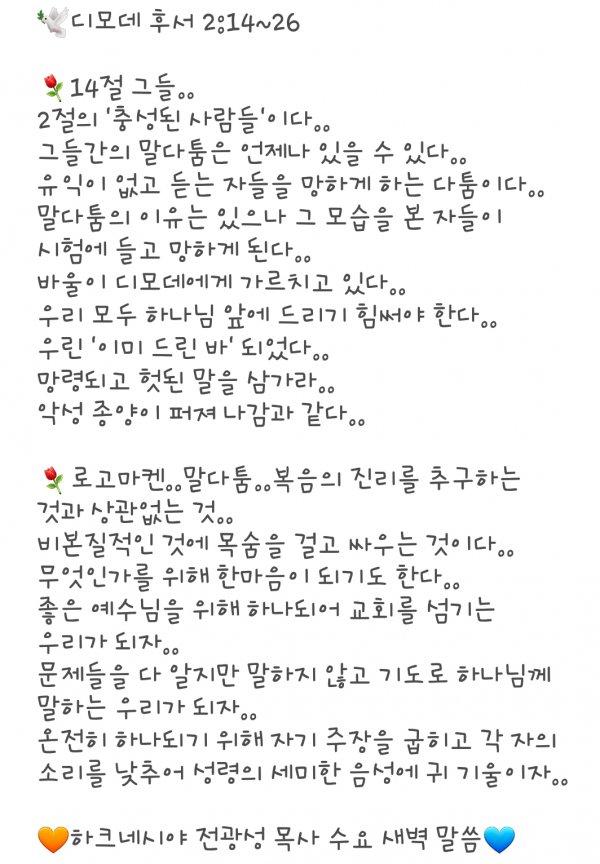 🕊️디모데 후서 2:14~26
🌹14절 그들。。
2절의 '충성된 사람들'이다。。
그들간의 말다툼은 언제나 있을 수 있다。。
유익이 없고 듣는 자들을 망하게 하는 다툼이다。。
말다툼의 이유는 있으나 그 모습을 본 자들이
시험에 들고 망하게 된다。。
바울이 디모데에게 가르치고 있다。。
우리 모두 하나님 앞에 드리기 힘써야 한다。。
우린 '이미 드린 바' 되었다。。
망령되고 헛된 말을 삼가라。。
악성 종양이 퍼져 나감과 같다。。
🌹로고마켄。。말다툼。。복음의 진리를 추구하는
것과 상관없는 것。。
비본질적인 것에 목숨을 걸고 싸우는 것이다。。
무엇인가를 위해 한마음이 되기도 한다。。
좋은 예수님을 위해 하나되어 교회를 섬기는
우리가 되자。。
문제들을 다 알지만 말하지 않고 기도로 하나님께
말하는 우리가 되자。。
온전히 하나되기 위해 자기 주장을 굽히고 각 자의
소리를 낮추어 성령의 세미한 음성에 귀 기울이자。。
🧡하크네시야 전광성 목사 수요 새벽 말씀💙